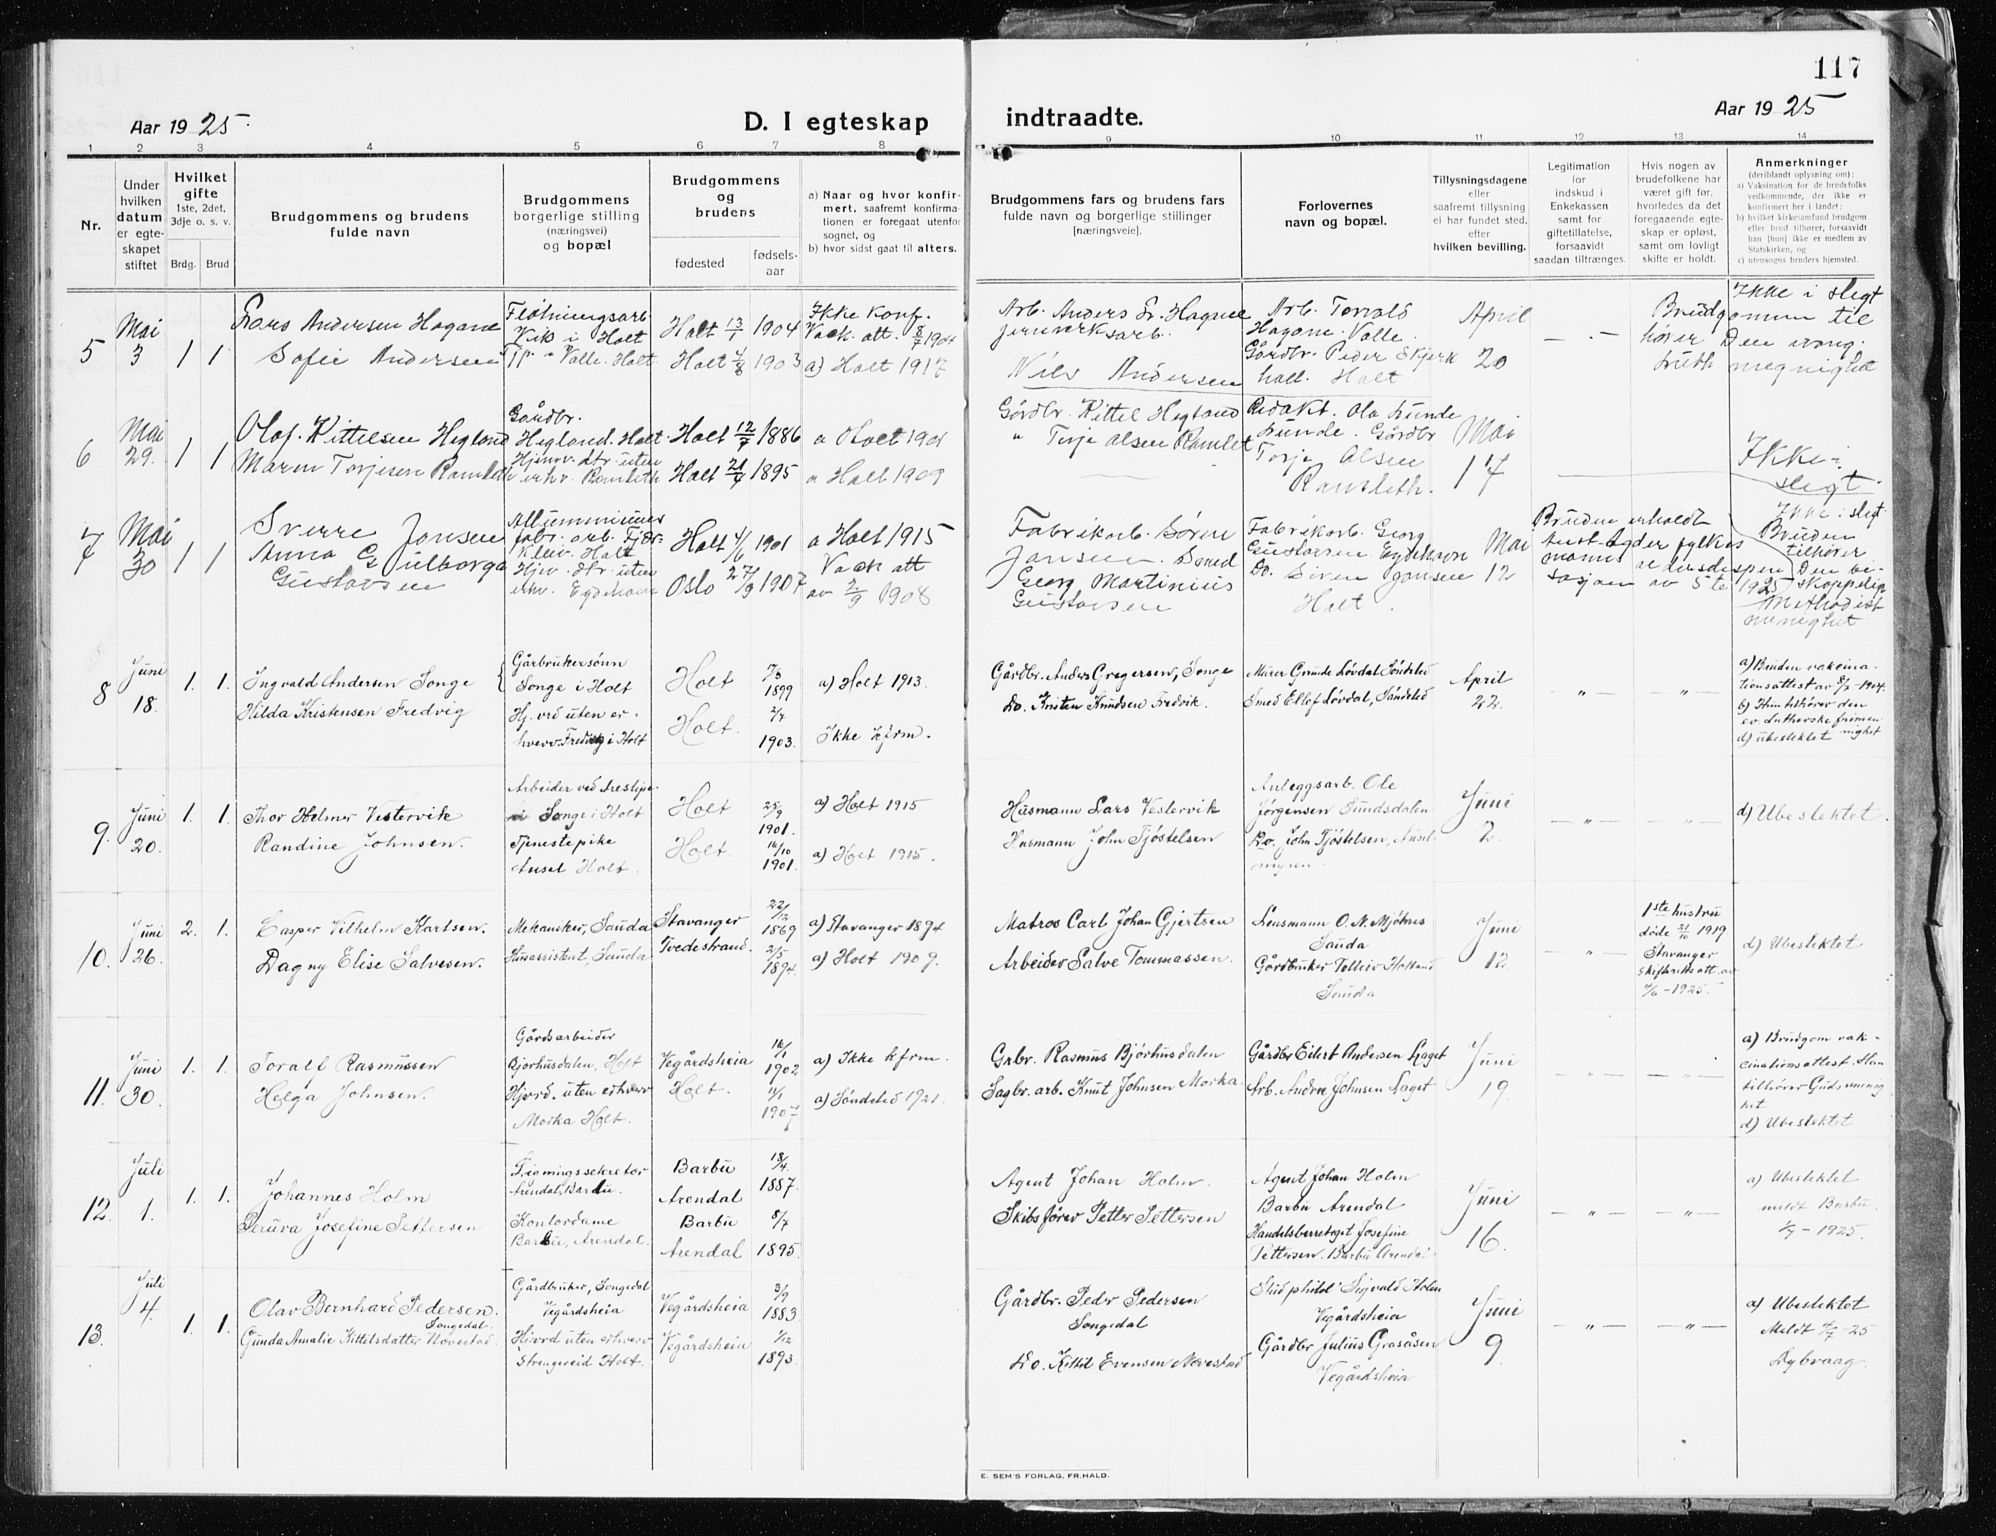 117
Aar 1925.
D. I egteskap indtraadte.
Aar 1925
1 2 3 4 5 6 7 8 9 10 11 12 13 14
Nr.
Under hvilken datum er egteskapet stiftet
Hvilket gifte 1ste, 2det, 3dje o. s. v.
Brdg. Brud
Brudgommens og brudens fulde navn
Brudgommens borgerlige stilling (næringsvei) og bopæl
Brudgommens og brudens
fødested
fødsels-aar
a) Naar og hvor konfirmert, saafremt konfirmationen er foregaaet utenfor sognet, og
b) hvor sidst gaat til alters.
Brudgommens fars og brudens fars fulde navn og borgerlige stillinger [næringsveie].
Forlovernes navn og bopæl.
Tillysningsdagene eller saafremt tillysning ei har fundet sted, efter hvilken bevilling.
Legitimation for indskud i Enkekassen samt for giftetillatelse, forsaavidt saadan tiltrænges.
Hvis nogen av brudefolkene har været gift før, hvorledes da det foregaaende egteskap er opløst, samt om lovligt skifte er holdt.
Anmerkninger (deriblandt oplysning om):
a) Vaksination for de brudefolks vedkommende, der ikke er konfirmert her i landet;
b) hvilket kirkesamfund brudgom eller brud tilhører, forsaavidt han [hun] ikke er medlem av Statskirken, og
c) utensogns bruders hjemsted.
5 Mai 3 1 1
Lars Andersen Hagane
Sofie Andersen
Fløtningsarb.
Vik i Holt
Valle. Holt
Holt 13/1 1904
Holt 4/8 1903
Ikke konf.
Vack. att. 8/7 1904
a) Holt 1917
Arb. Anders Hagane
jernverksarb.
Niels Andersen
Arb. Torvald
Hagane. Valle.
Gårdbr. Peder
Holt
April
20
Brudgommen tilhører Den evang. luth menighed
Ikke i slegt
6 Mai 29. 1 1
Olaf Kittelsen Hegland
Maren Torjesen Ramleth
Gårdbr.
Hegland. Holt
Hjemv. dtr uten
erhv. Ramleth
Holt 12/7 1886
Holt 21/9 1895
a Holt 1901
a Holt 1909
Gårdbr. Kittel Hegland
" Torje Olsen Ramlet
Redakt. Ola Lunde
Lunde. Gårdbr
Torje Olsen
Ramleth.
Mai
17
Ikke i
slegt.
7 Mai 30 1 1
Sverre Jansen
Anna Gulborga
Gustavsen
Alluminiums
fabr. arb.
Holt
Hjv. dtr. uten
erhv. Eydehavn
Holt 4/6 1901
Oslo 27/9 1907
a Holt 1915
Vack att
av 2/9 1908
Fabrikarb. Søren
Jansen.
Georg Martinius
Gustavsen
Fabrikarb. Georg
Gustavsen Eydehavn
Do. Søren Jansen
Holt.
Mai
12
Bruden erholdt
Aust-Agder fylkes
mans aldersdispen
sasjon av 5te 1925
Ikke i slegt
Bruden
tilhører
Den bi-
skoppelig
Methodist
menighet
8 Juni 18. 1. 1.
Ingvald Andersen Songe
Hilda Kristensen Fredvig
Gårbrukersønn
Songe i Holt
Hj. vrd uten er-
hverv. Fredvig i Holt
Holt
Holt.
7/3 1899
2/7 1903.
a) Holt 1913.
Ikke kfrm.
Gårdbr. Anders Gregersen, Songe
Do. Kristen Knudsen Fredvik.
Murer Gunde Løvdal Søndeled
Smed Ellef Løvdal, Søndeled
April
22.
— " —
— " —
a) Bruden vakcina-
tionsattest av 8/7-1904.
b) Hun tilhører den
ev. Lutherske frimen-
nighet
d) ubeslektet
9. Juni 20. 1. 1.
Thor Helmer Vestervik
Randine Johnsen.
Arbeider ved
Songe i Holt
Tjenestepike
Ausel Holt.
Holt
Holt.
25/9 1901.
16/10 1901.
a) Holt 1915
a) Holt 1915.
Husmann Lars Vestervik
Husmann John Tjøstelsen
Anleggsarb. Ole
Jørgensen Sundsdalen
Do. John Tjøstelsen, Ausel
myren.
Juni
2.
— " —
— " —
d) Ubeslektet.
10. Juni 26. 2. 1.
Casper Vilhelm Karlsen.
Dagny Elise Salvesen.
Mekaniker, Sauda
Husassistent, Sauda
Stavanger
Tvedestrand.
22/12 1869
2/5 1894.
a) Stavanger 1894
a) Holt 1909.
Matros Carl Johan Gjertsen
Arbeider Salve Tommassen.
Lensmann O. N. Mjølnes
Sauda
Gårdbruker Tolleiv Hølland
Sauda
Juni
12.
— " —
1ste hustru
døde 21/10 1919
Stavanger
skifteretts att. av
4/6-1925.
d) Ubeslektet
11. Juni 30. 1. 1.
Toralf Rasmussen
Helga Johnsen.
Gårdsarbeider
Bjorhusdalen, Holt
Hjvrd. uten erhverv
Morka Holt.
Vegårdsheia
Holt.
16/1 1902
11/1 1907
a) Ikke kfrm.
a) Søndeled 1921.
Grbr. Rasmus Bjørhusdalen
Sagbr. arb. Knut Johnsen Morka.
Gårdbr Eilert Andersen Laget
Arb. Andree Johnsen Laget
Juni
19.
— " —
— " —
a) Brudgom vak-
cinationsattest. Han
tilhører Guds menig
het
d) Ubeslektet
12. Juli 1. 1. 1.
Johannes Holm
Peruva Josefine Pettersen
Ligningssekretær
Arendal, Barbu.
Kontordame
Barbu, Arendal.
Barbu
Arendal
Barbu
Arendal
18/4. 1887.
8/7 1895.
Agent Johan Holm.
Skibsfører Petter Pettersen
Agent Johan Holm
Barbu Arendal
Handelsberettiget Josefine
Pettersen. Barbu Arendal
Juni
16.
— " —
— " —
a) Ubeslektet
meldt Barbu
4/7-1925.
13. Juli 4. 1. 1.
Olav Bernhard Pedersen.
Songedal.
Gunda Amalie Kittilsdatter Hovestad.
Gårdbruker, Songedal
Vegårdsheia
Hjvrd uten erhverv
Strengereid Holt.
Vegårdsheia
Vegårdsheia
3/9 1883.
1/12 1893.
Gårdbr. Peder Pedersen
Songedal
Do. Kittil Evensen Hovestad
Stud philol Sigvald Holm
Vegårdsheia
Gårdbr Julius Grasåsen
Vegårdsheia
Juni
9.
— " —
— " —
a) Ubeslektet
Meldt 4/7-25
Dybvaag.
E. SEM'S FORLAG, FR.HALD.